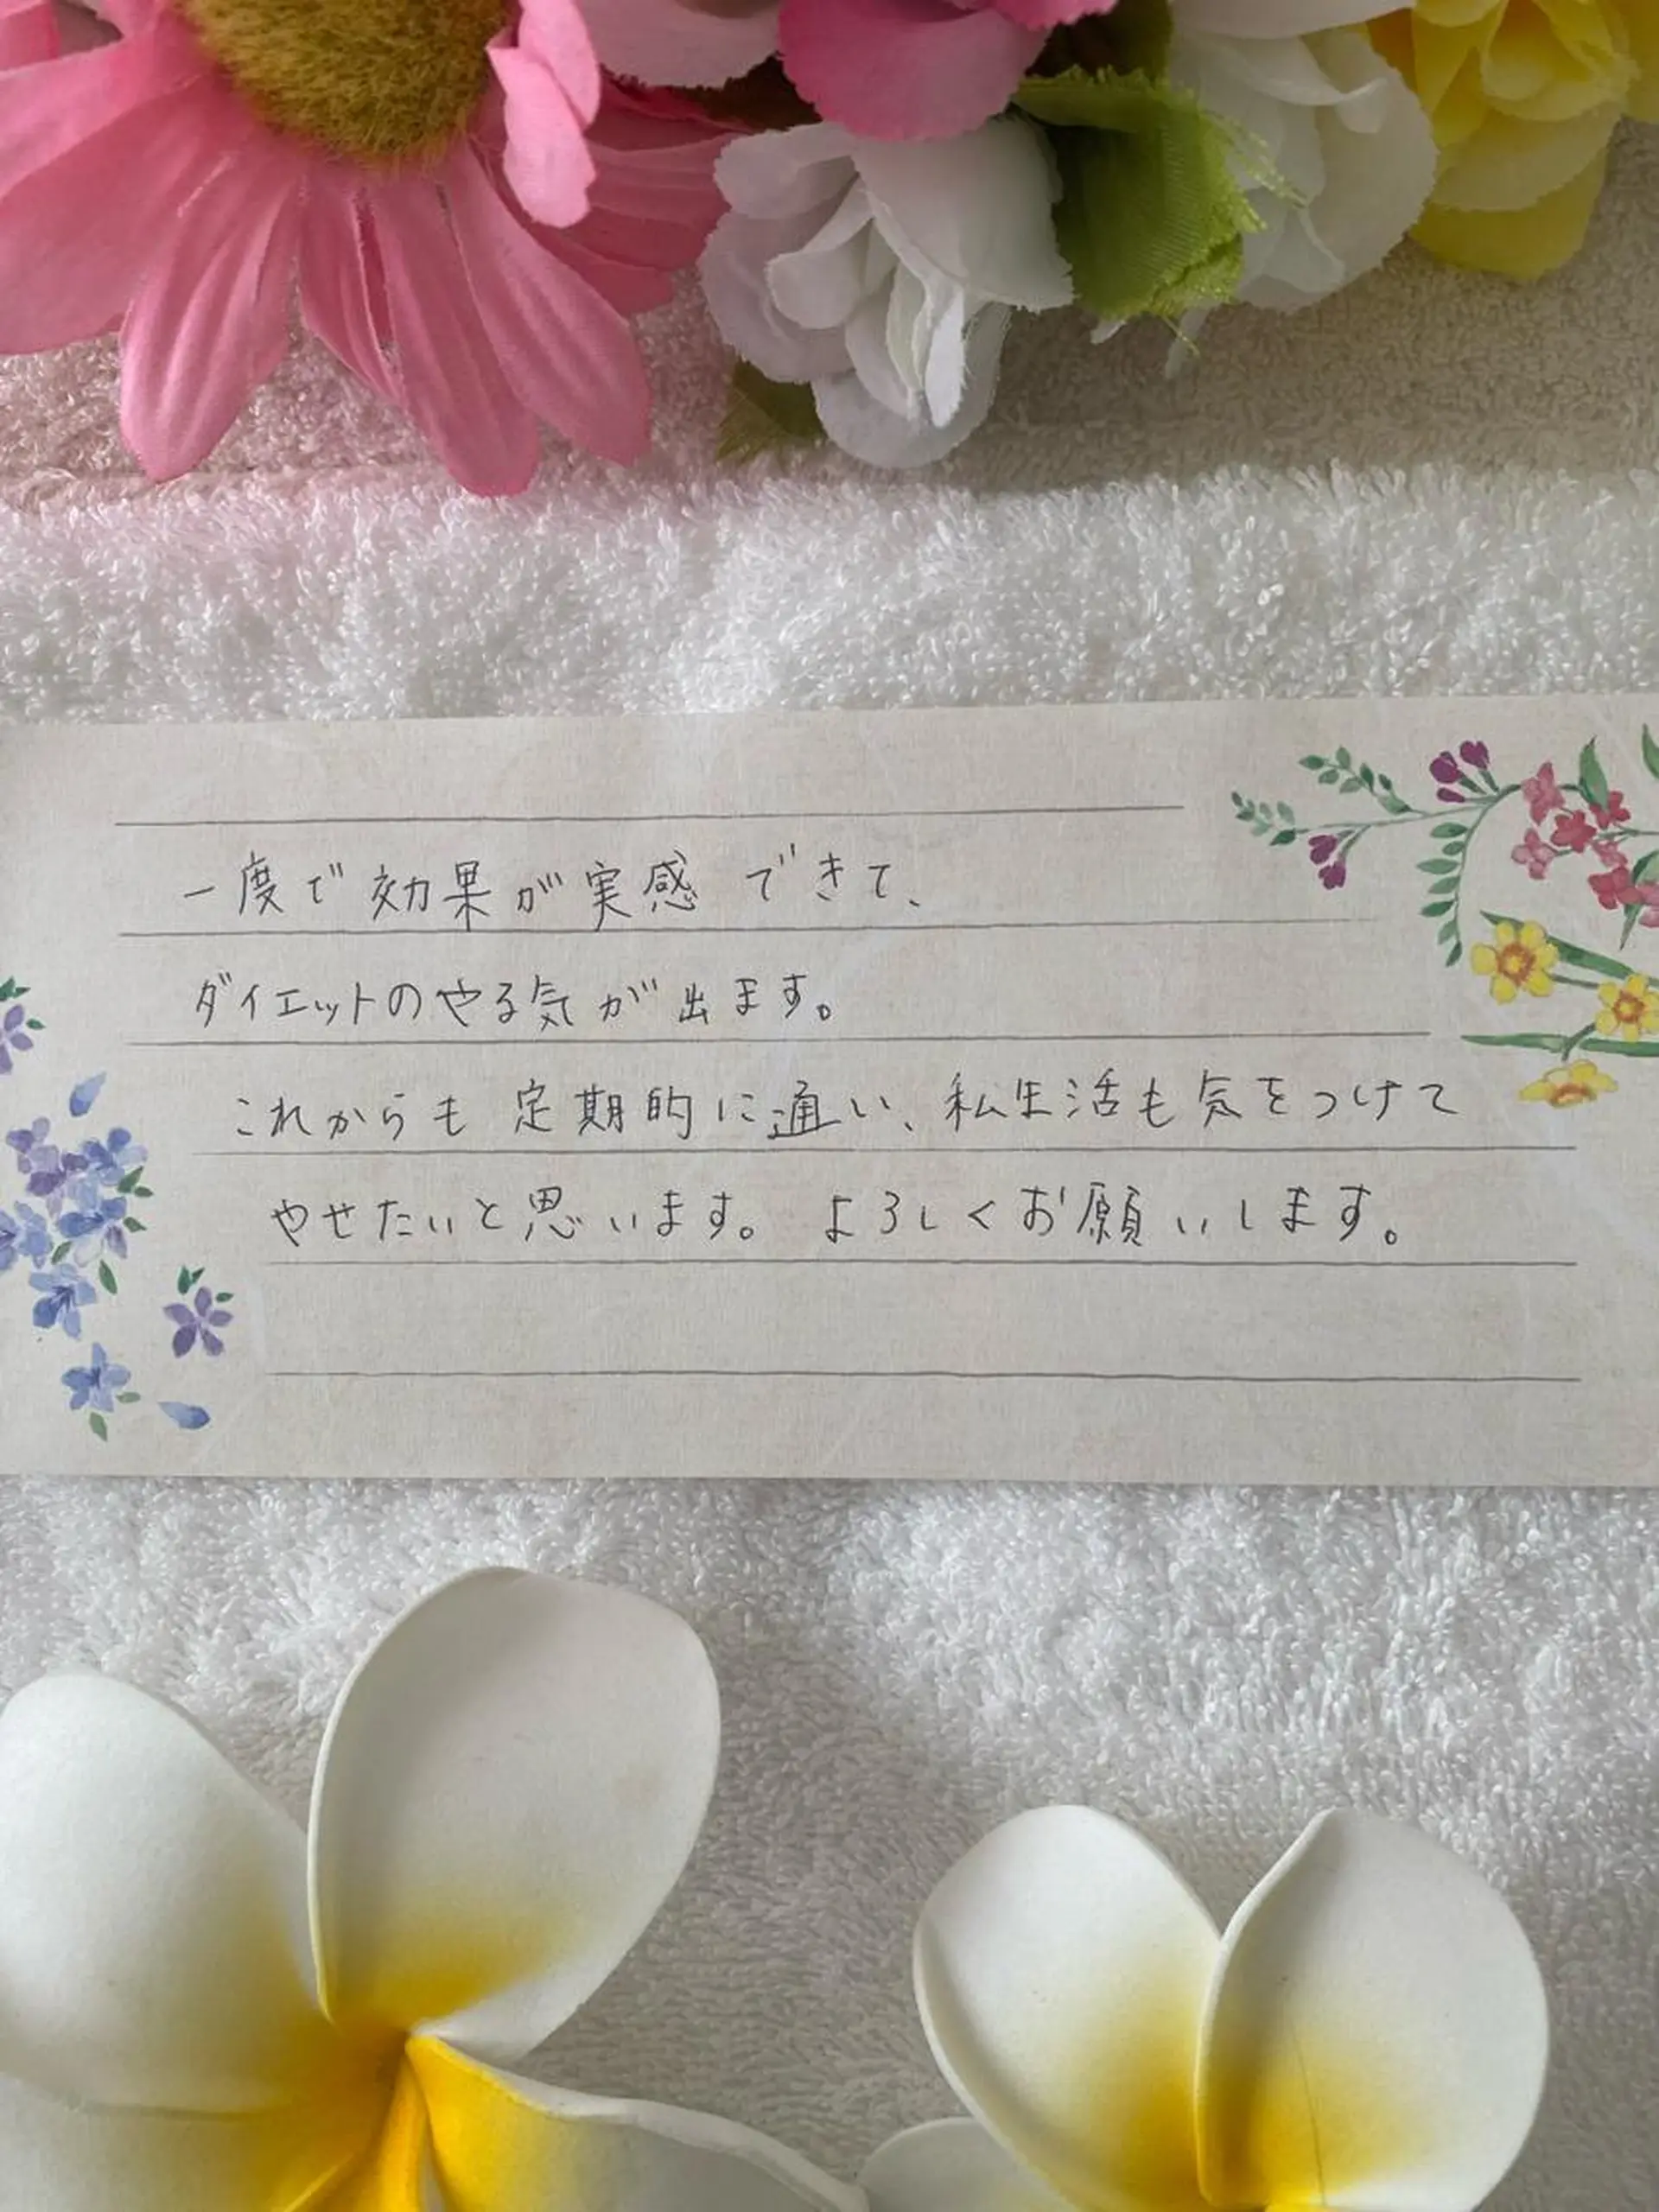 一度で効果が実感できて、
ダイエットのやる気が出ます。
これからも定期的に通い、私生活も気をつけて
やせたいと思います。よろしくお願いします。